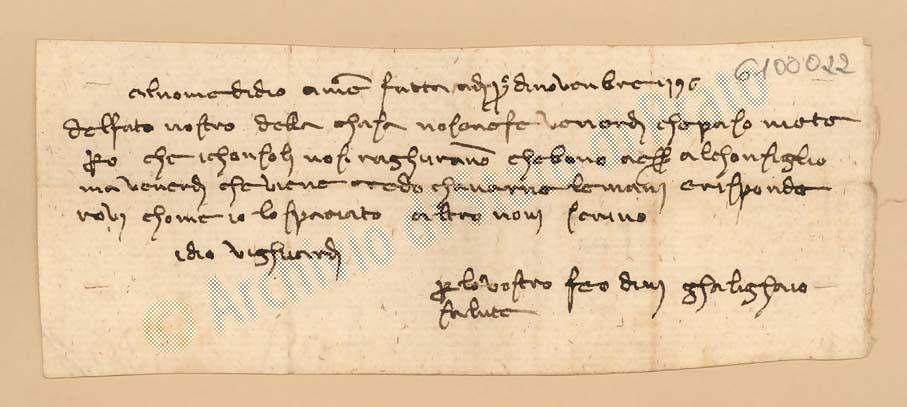 6100022
al nome di dio ame fatta adi po di novenbre 1396
del fato nostro della chasa no se ne fe venerdi che paso niete
pro che i chonsoli no si raghurano che bono a al chonsiglio
ma venerdi che viene credo chavarne le mani e risponde
rovi chome io lo spaciato altro non scrivo
idio vi ghuardi
per lo vostro feo di ghalighaio
salute
© Archivio di Stato di Prato